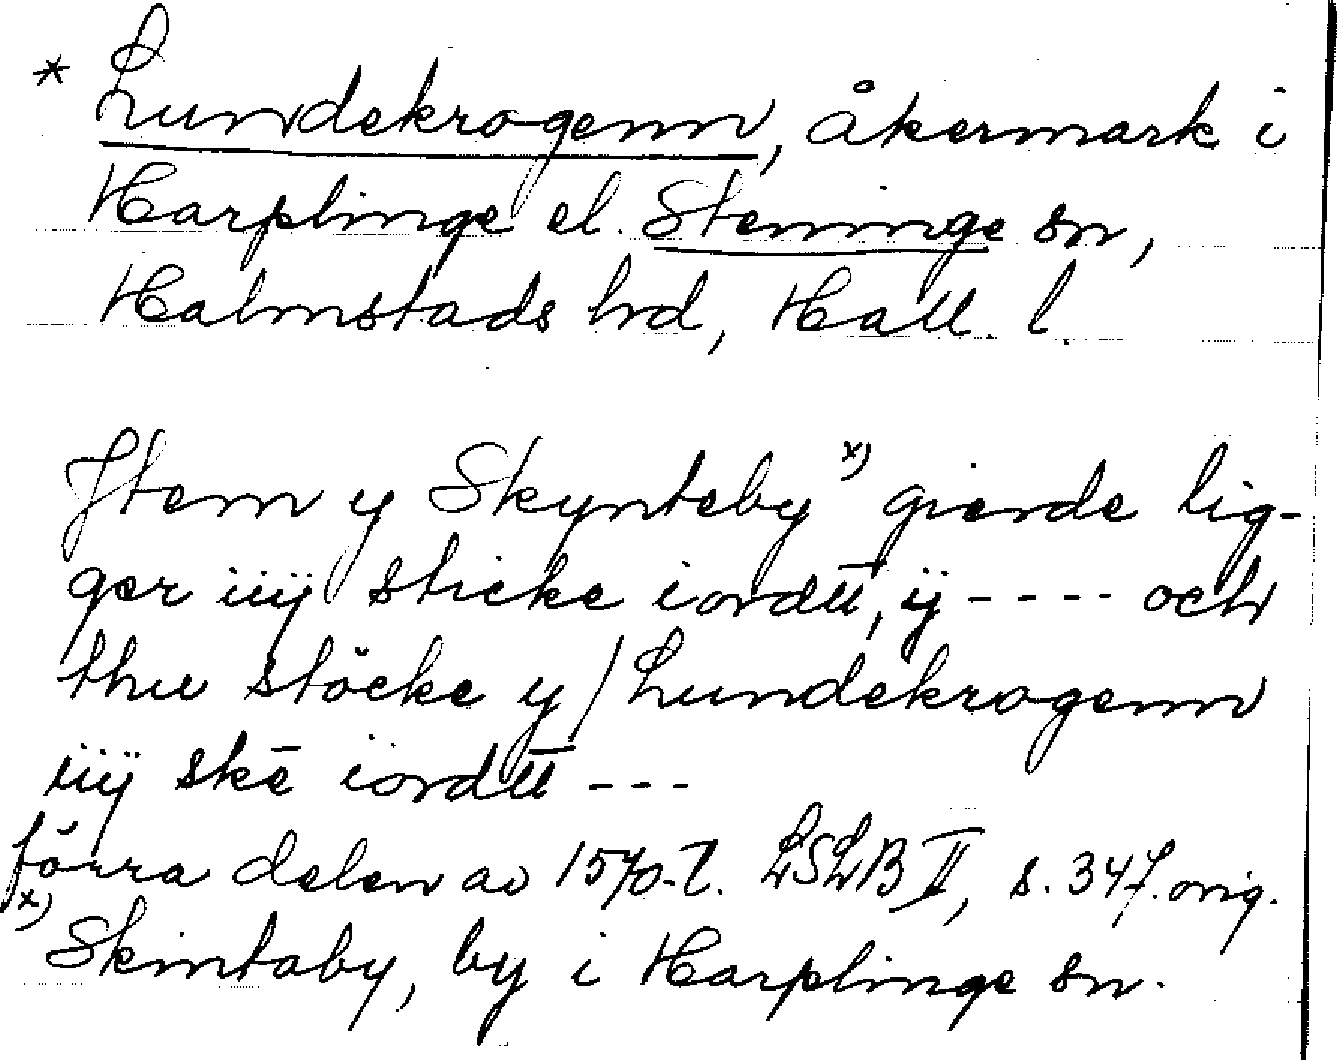 * Lundekrogenn, åkermark i
Harplinge el. Steninge sn,
Halmstads hrd, Hall. l.
Jtem y Skynteby x) gierde lig-
ger iiij sticke iordtt, ij - - - - och
thu stöcke y / Lundekrogenn
iiij skē iordtt - - -
förra delen av 1570-t. LSLB II, s. 347. orig.
x) Skintaby, by i Harplinge sn.